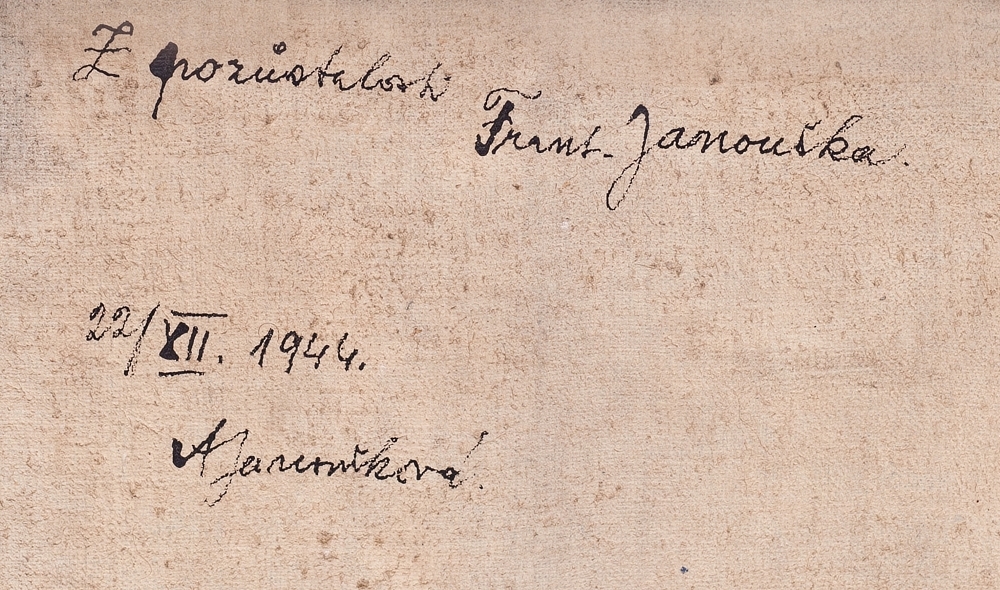 Z pozůstalosti
Frant. Janouška.
22/XII. 1944.
A Janoušková.